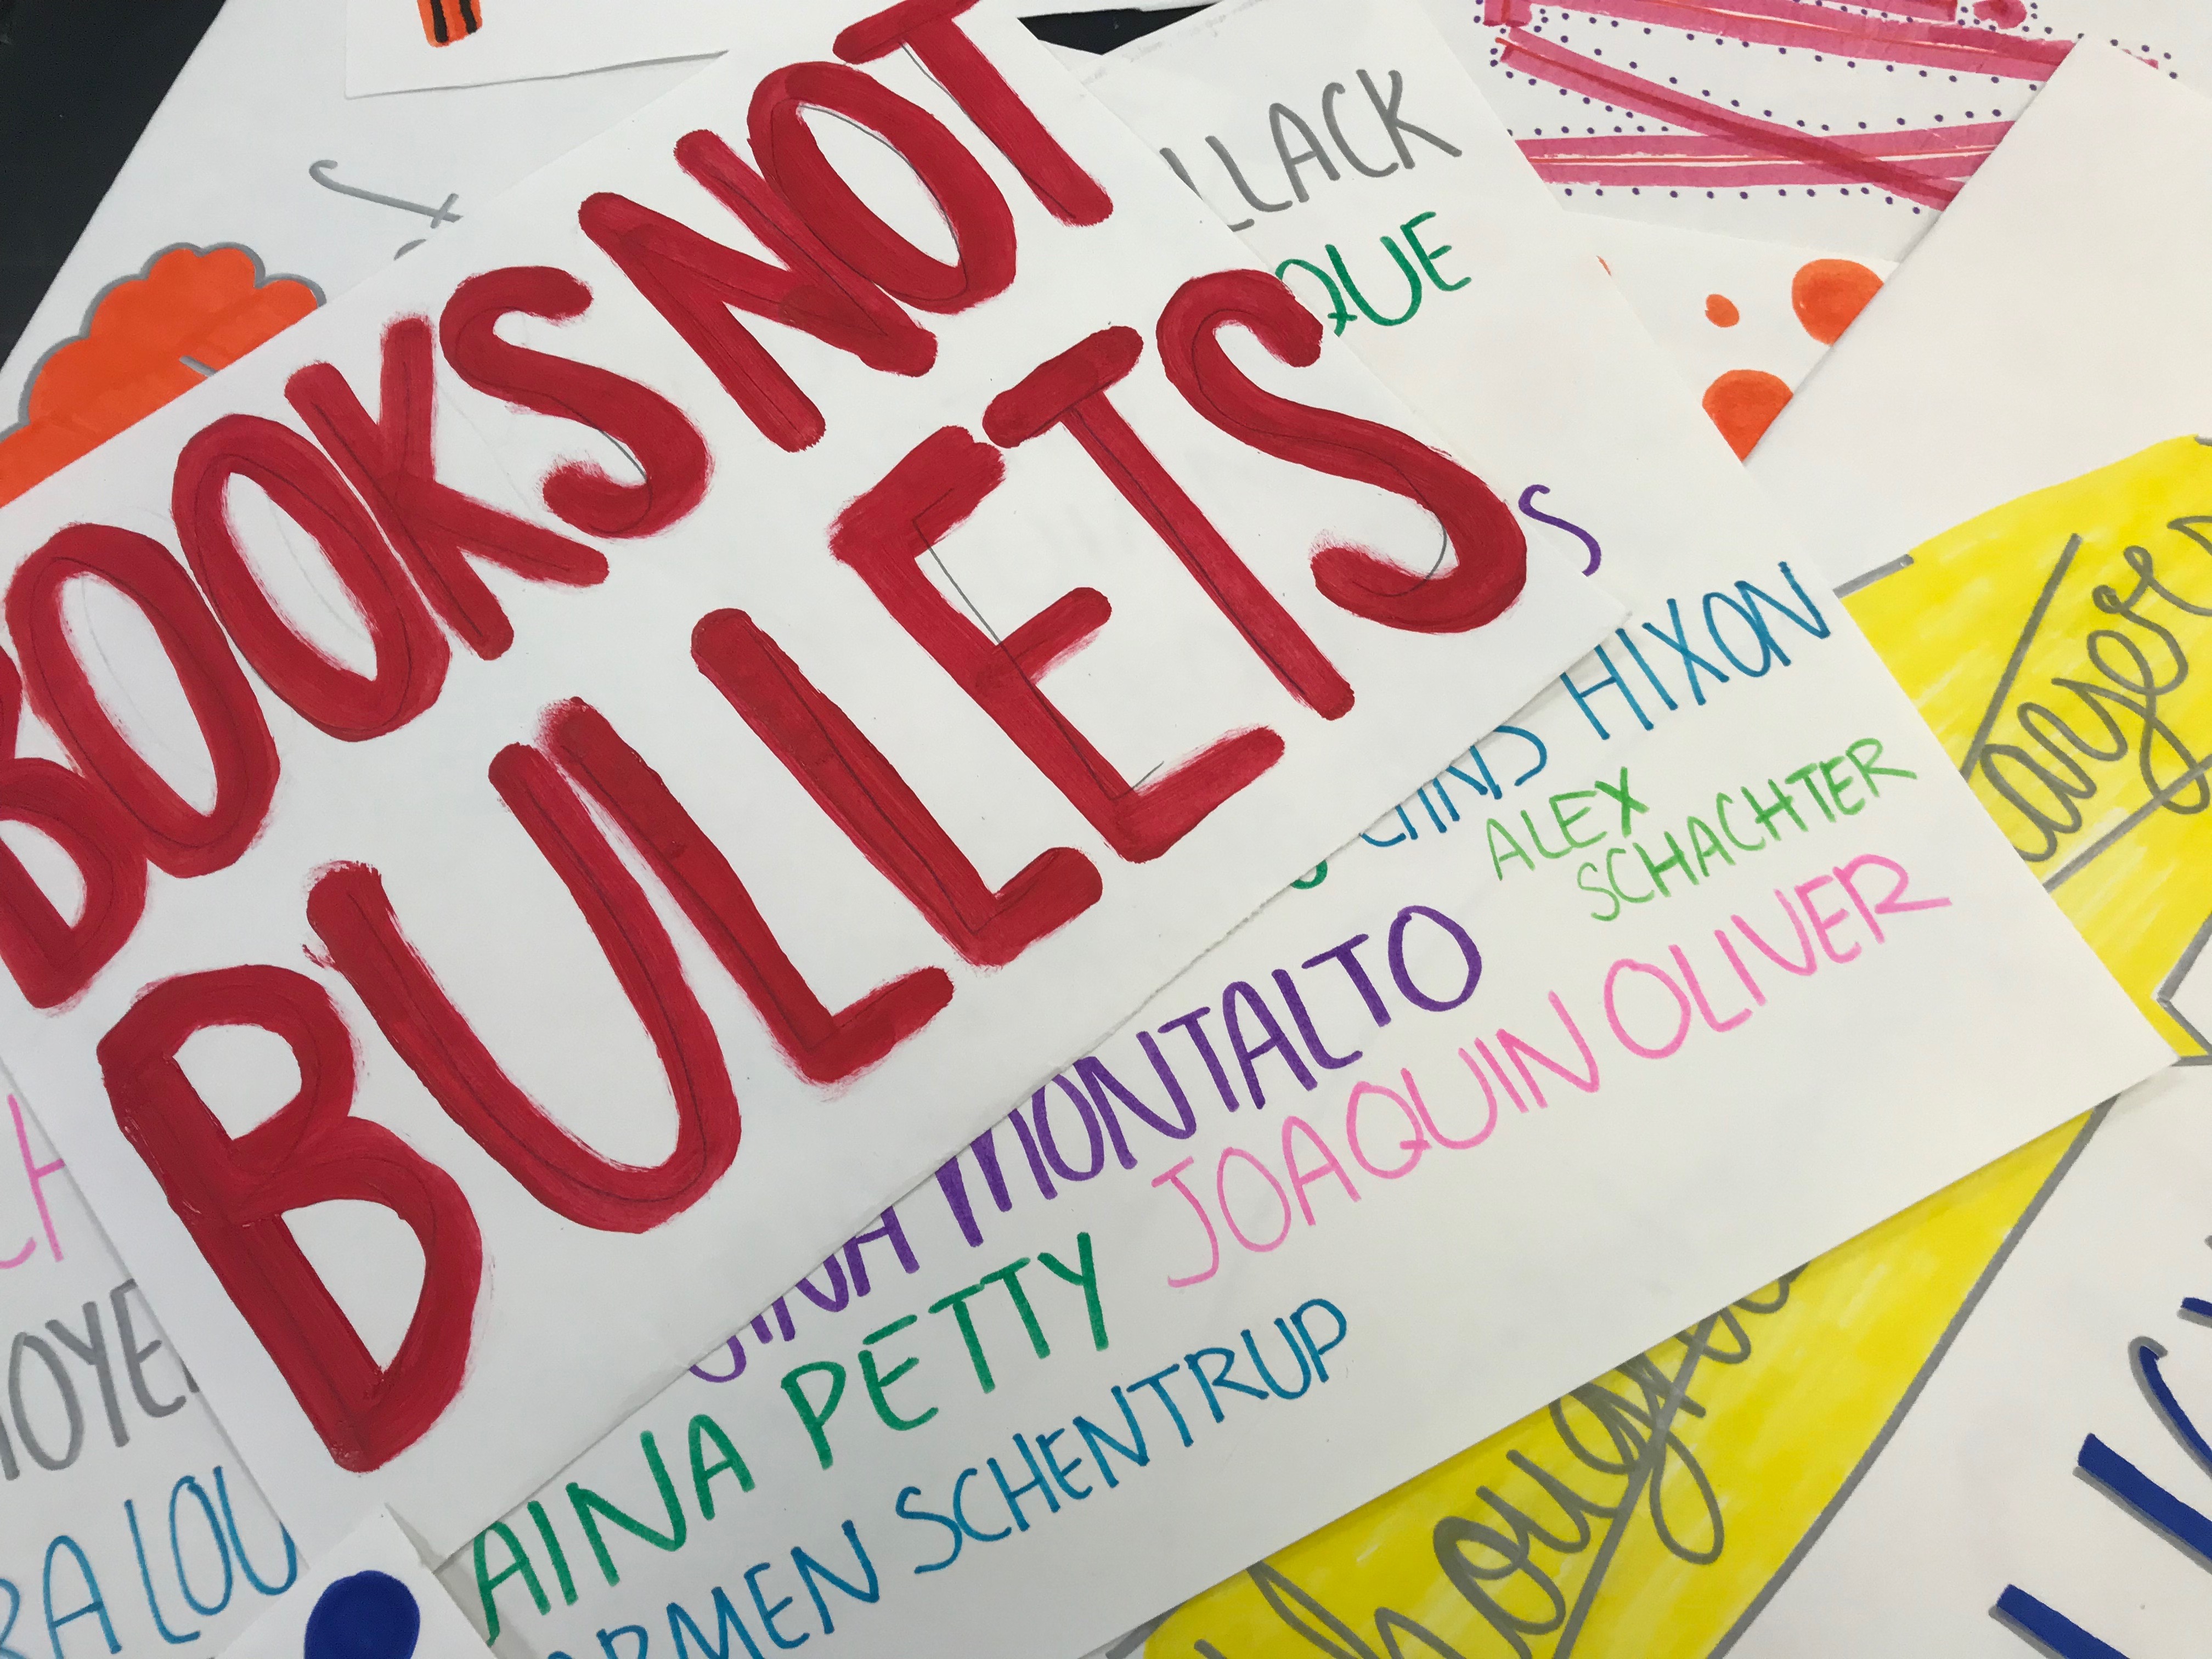 BOOKS NOT
BULLETS
LLACK
QUE
S
CHRIS HIXON
ALEX
SCHACHTER
GINA MONTALTO
JOAQUIN OLIVER
AINA PETTY
ARMEN SCHENTRUP
OYE
RA LOU
ayers
houghts